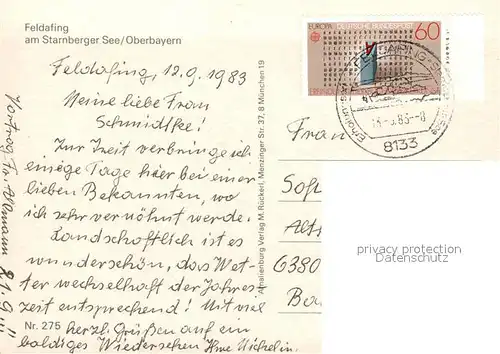 Feldafing
am Starnberger See/Oberbayern
Feldafing, 12.9.1983
Meine liebe Frau
Schmidtke!
Zur Zeit verbringe ich
einige Tage hier bei einer
lieben Bekannten, wo
ich sehr verwöhnt werde.
Landschaftlich ist es
wunderschön, das Wet-
ter wechselhaft der Jahres-
zeit entsprechend! Mit viel
herzl. Grüßen auf ein
baldiges Wiedersehen Ihre
Nr. 275
Vortrag Fr. Altmann 21.9.!!
Amalienburg Verlag M. Rückerl, Menzinger Str. 37, 8 München 19
EUROPA DEUTSCHE BUNDESPOST 60
8133
Frau
6380
privacy protection
Datenschutz